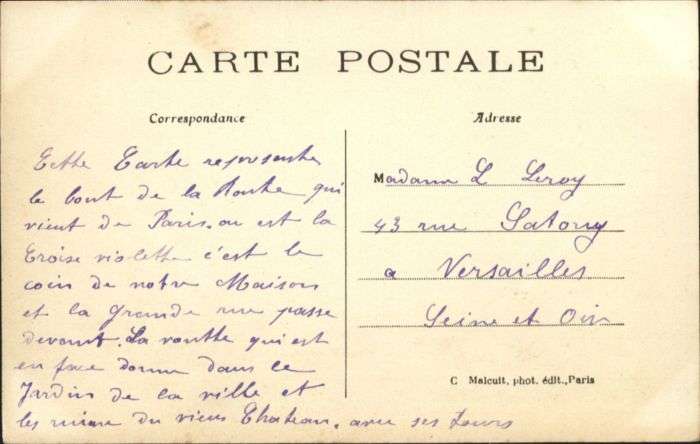 CARTE POSTALE
Correspondance
Adresse
Cette Carte represente
le bout de la Route qui
vient de Paris. ou est la
Croise violette c'est le
coin de notre Maison
et la Grande rue passe
devant. La routte qui est
en face donne dans le
Jardin de la ville et
les ruine du vieux Chateau. avec ses tours
Madame L Leroy
43 rue Satory
a Versailles
Seine et Oise
C Malcuit, phot. édit., Paris